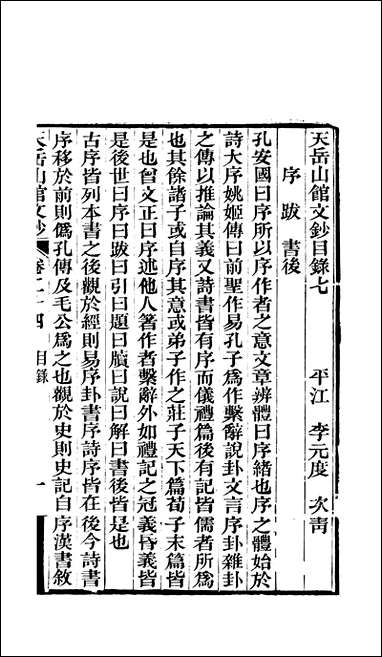 天岳山館文鈔目錄七　　平江　李元度　次靑
序　跋　書後
孔安國曰序所以序作者之意文章辨體曰序緒也序之體始於
詩大序姚姬傳曰前聖作易孔子爲作繫辭說卦文言序卦雜卦
之傳以推論其義又詩書皆有序而儀禮篇後有記皆儒者所爲
也其餘諸子或自序其意或弟子作之莊子天下篇荀子末篇皆
是也曾文正曰序述他人箸作者繫辭外如禮記之冠義昏義皆
是後世曰序曰跋曰引曰題曰牘曰說曰解曰書後皆是也
古序皆列本書之後觀於經則易序卦書序詩序皆在後今詩書
序移於前則僞孔傳及毛公爲之也觀於史則史記自序漢書敘
天岳山館文鈔　卷二十四　目錄　一